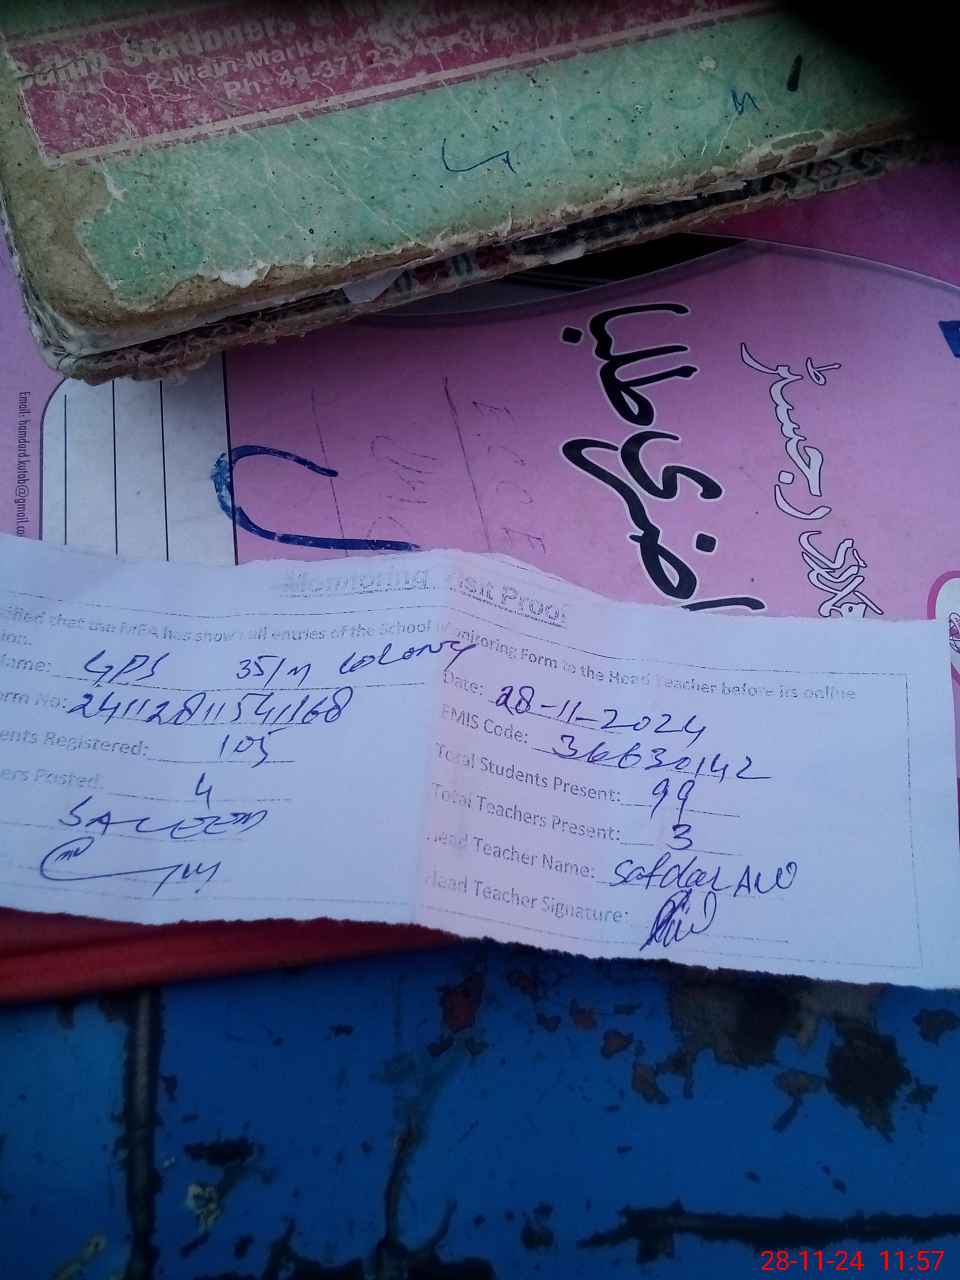 Stationers
2-Main Market
Ph: 42-37123
حاضری طلبا
رجسٹر
Email: hamdard.kutab@gmail.co
Monitoring Visit Proof
ified that the MEA has shown all entries of the School Monitoring Form to the Head Teacher before its online
ion.
Name: GPS 35/M Colony
Date: 28-11-2024
orm No: 24112811541168
EMIS Code: 36630142
ents Registered: 105
Total Students Present: 99
ers Posted: 4
Total Teachers Present: 3
SALEEM
Head Teacher Name: Safdar Ali
Head Teacher Signature:
28-11-24 11:57